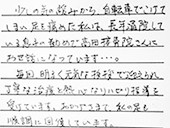 少しの雨の染みから、自転車でこけて
しまい足を痛めた私は、長年通院して
いる息子の勧めで高田接骨院さんに
お世話になっています…。
毎回、明るく元気な挨拶で迎えられ
丁寧な治療と熱心なリハビリ指導を
受けています。おかげさまで、私の足も
順調に回復しています。